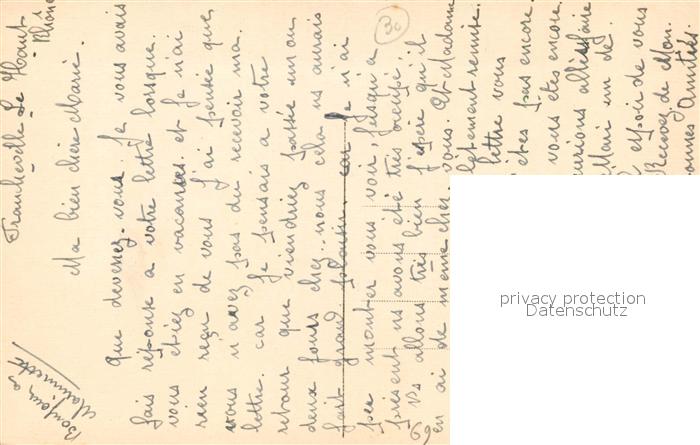 Francheville-Le-Haut
Rhône
Ma bien chère Marie.
que devenez-vous. Je vous avais
fais réponse a votre lettre lorsque
vous etiez en vacances et je n'ai
rien reçu de vous j'ai pensée que
vous n'avez pas dû recevoir ma
lettre. car je pensais a votre
retour que viendriez passé un ou
deux jours chez-nous cela ns aurais
fait grand plaisir. car je n'ai
peu monter vous voir, jusqu'a
présent ns avons eté très occupé,
Ns allons très bien j'éspère qu'il
en ai de même chez vous. Et Madame
plètement remise.
lettre vous
êtes pas encore
vous êtes encore
aurions allés faire
Mari un dé
espoir de vous
Recevez de Mon
bonnes Amitiés.
Bonjour a
30
69
privacy protection
Datenschutz